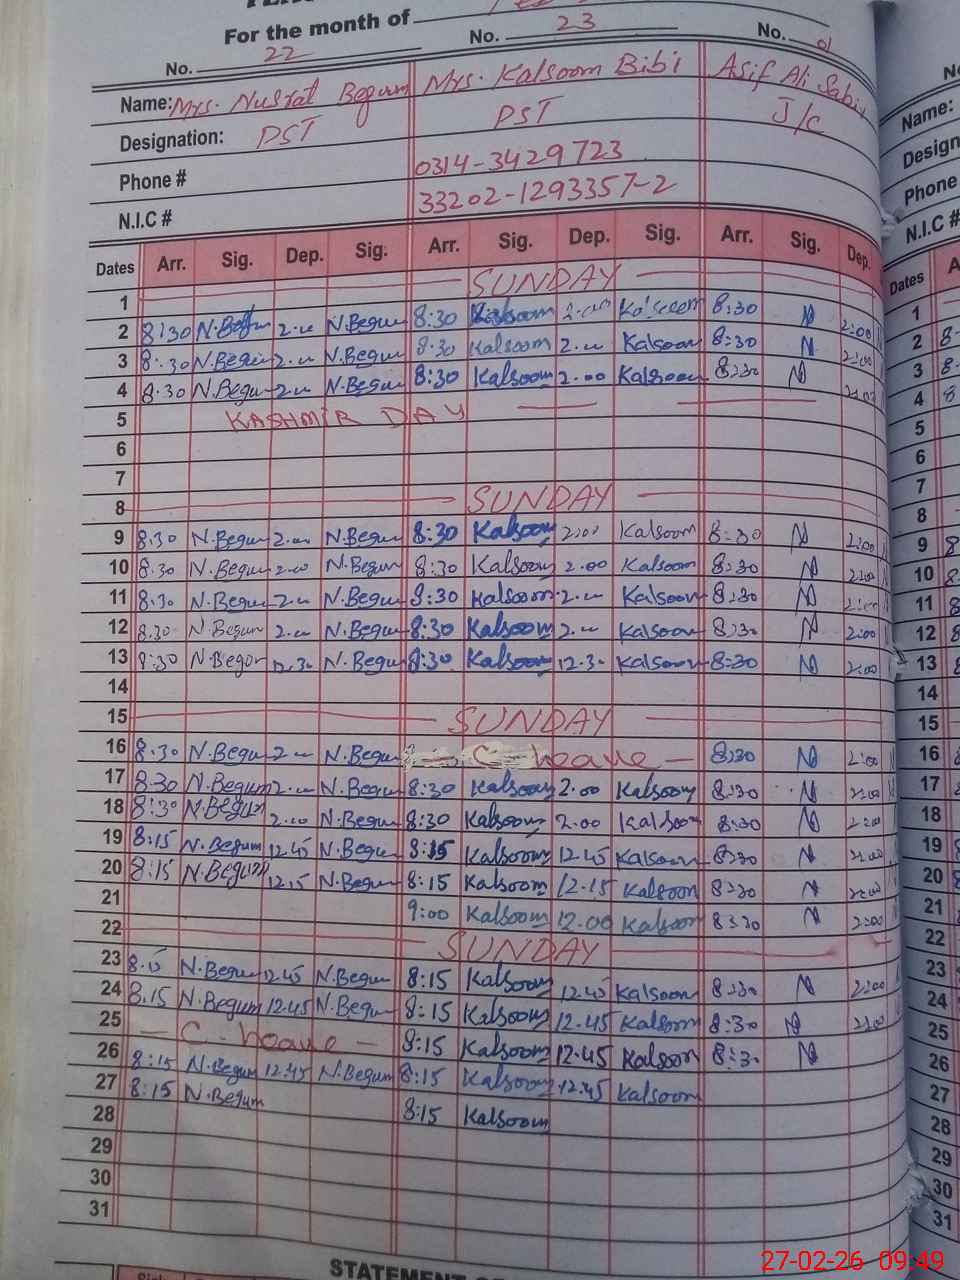 For the month of
No. 22 No. 23 No.
Name: Mrs. Nusrat Begum Mrs. Kalsoom Bibi Asif Ali Sabir
Designation: PST PST J/c
Phone # 0314-3429723
N.I.C # 33202-1293357-2
Dates Arr. Sig. Dep. Sig. Arr. Sig. Dep. Sig. Arr. Sig. Dep.
1 SUNDAY
2 8:30 N.Begum 2.00 N.Begum 8:30 Kalsoom 2.00 Kalsoom 8:30 N 2:00
3 8:30 N.Begum 2.00 N.Begum 8:30 Kalsoom 2.00 Kalsoom 8:30 N 2:00
4 8.30 N.Begum 2.00 N.Begum 8:30 Kalsoom 2.00 Kalsoom 8:30 N 2:00
5 KASHMIR DAY
6
7
8 SUNDAY
9 8.30 N.Begum 2.00 N.Begum 8:30 Kalsoom 2:00 Kalsoom 8:30 N 2:00
10 8.30 N.Begum 2.00 N.Begum 8:30 Kalsoom 2.00 Kalsoom 8:30 N 2:00
11 8.30 N.Begum 2.00 N.Begum 8:30 Kalsoom 2.00 Kalsoom 8:30 N 2:00
12 8.30 N.Begum 2.00 N.Begum 8:30 Kalsoom 2.00 Kalsoom 8:30 N 2:00
13 8:30 N.Begum 12.30 N.Begum 8:30 Kalsoom 12.30 Kalsoom 8:30 N 2:00
14
15 SUNDAY
16 8.30 N.Begum 2.00 N.Begum C. Leave 8:30 N 2:00
17 8.30 N.Begum 2.00 N.Begum 8:30 Kalsoom 2.00 Kalsoom 8:30 N 2:00
18 8:30 N.Begum 2.00 N.Begum 8:30 Kalsoom 2.00 Kalsoom 8:30 N 2:00
19 8:15 N.Begum 12.45 N.Begum 8:15 Kalsoom 12.45 Kalsoom 8:30 N 2:00
20 8:15 N.Begum 12.15 N.Begum 8:15 Kalsoom 12.15 Kalsoom 8:30 N 2:00
21 9:00 Kalsoom 12.00 Kalsoom 8:30 N 2:00
22 SUNDAY
23 8.15 N.Begum 12.45 N.Begum 8:15 Kalsoom 12.45 Kalsoom 8:30 N 2:00
24 8.15 N.Begum 12.45 N.Begum 8:15 Kalsoom 12.45 Kalsoom 8:30 N 2:00
25 C. Leave 8:15 Kalsoom 12.45 Kalsoom 8:30 N
26 8:15 N.Begum 12:45 N.Begum 8:15 Kalsoom 12:45 Kalsoom
27 8:15 N.Begum 8:15 Kalsoom
28
29
30
31
STATEMENT
Name:
Design
Phone
N.I.C #
Dates
1
2
3
4
5
6
7
8
9
10
11
12
13
14
15
16
17
18
19
20
21
22
23
24
25
26
27
28
29
30
31
27-02-26 09:49